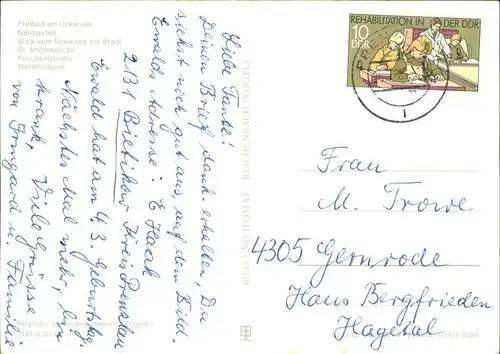 Freibad am Uckersee
Neubauten
Blick vom Uckersee zur Stadt
St. Marienkirche
Mitteltorturm
Liebe Tante!
Deinen Brief dank. erhalten, Du
siehst noch gut aus, auf dem Bild.
Ewalds Adresse: E Haack
2131 Bietikow Kreis Prenzlau
Ewald hat am 4.3. Geburtstag.
Nächstes Mal mehr, bin
krank, Viele Grüsse
von Irmgard u. Familie
BILD UND HEIMAT REICHENBACH (VOGTL)
REHABILITATION IN DER DDR
10
DDR
Frau
M. Trowe
4305 Gernrode
Haus Bergfrieden
Hagetal